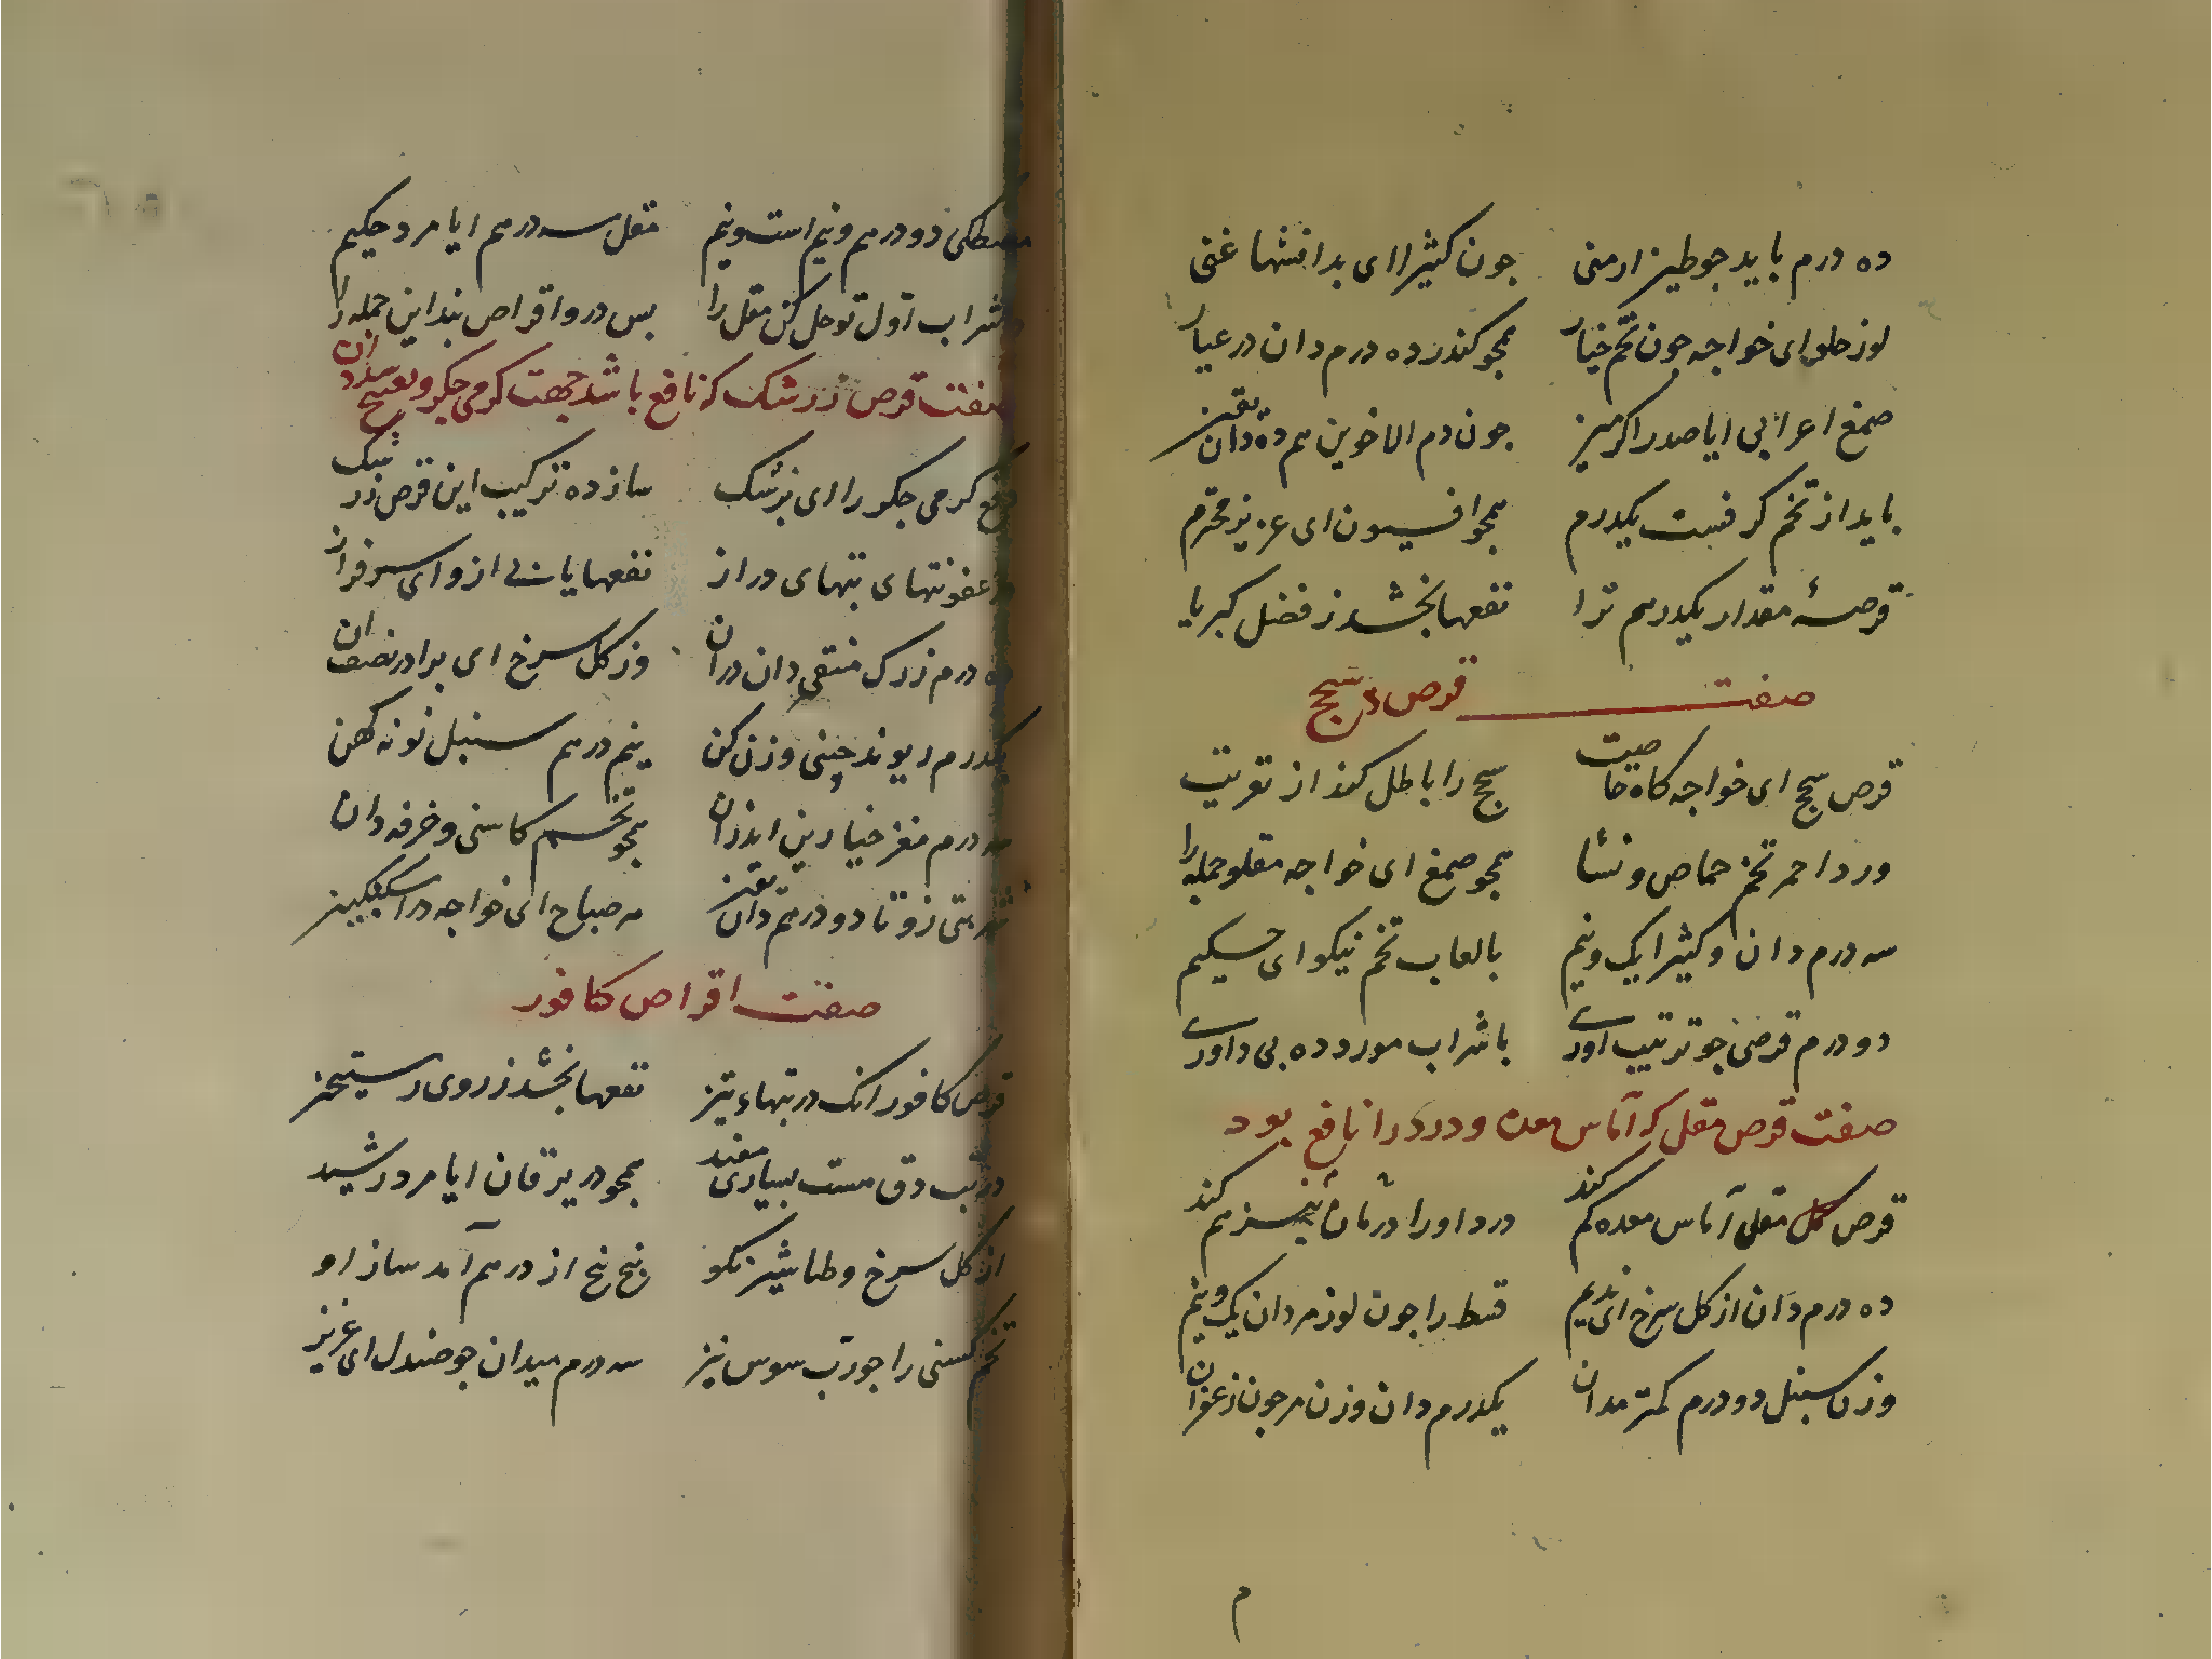 ده درم باید جو طین ارمنی جون کثیرا ای بدانشها غنی
لوز حلو ای خواجه جون تخم خیار همجو کندر ده درم دان در عیار
صمغ اعرابی ایا صدر اکرمین جون دم الاخوین هم ده دان یقین
باید از تخم کرفست یکدرم همجو افیون ای عزیز محترم
قرصهٔ مقدار یکدرهم ترا نفعها بخشد ز فضل کبریا
صفت قرص سحج
قرص سحج ای خواجه کاه خاصیت سحج را باطل کند از تقویت
ورد احمر تخم حماص و نشا همجو صمغ ای خواجه مقلو جمله را
سه درم دان و کثیرا یک و نیم بالعاب تخم نیکو ای حکیم
دو درم قرضی جو ترتیب اوری با شراب مورد ده بی داوری
صفت قرص مقل که آماس معده و درد را نافع بود
قرص مقلی آماس معده کم کند درد او را درمان نیز هم کند
ده درم دان از کل سرخ ای ندیم قسط را جون لوز مر دان یک و نیم
وزن سنبل دو درم کمتر مدان یکدرم دان وزن مر جون زعفران
مصطکی دو درهم و نیم است و نیم مقل سه درهم ایا مرد حکیم
در شراب اول تو حل کن مقل را بس درو اقراص بند این جمله را
صفت قرص زرشک که نافع باشد جهت کرمی جکر و
دفع کرمی جکر را ای بزشک ساز ده ترکیب این قرص زرشک
در عفونتهای تبهای دراز نفعها یابی ازو ای سرفراز
ده درم زرک منقی دان دران وز کل سرخ ای برادر نصف ان
یکدرم ریوند چینی وزن کن نیم درهم سنبل نو نه کهن
سه درم مغز خیارین اندران همجو تخم کاسنی و خرفه دان
شربتی زو تا دو درهم دان یقین هر صباح ای خواجه در اسکنکبین
صفت اقراص کافور
قرص کافور انک در تبهاء تیز نفعها بخشد ز روی رستخیز
در تب دق هست بسیاری مفید همجو در یرقان ایا مرد رشید
از کل سرخ و طباشیر نکو پنج پنج از درهم آمد ساز او
تخم کسنی را جو رب سوس نیز سه درم میدان جو صندل ای عزیز
م